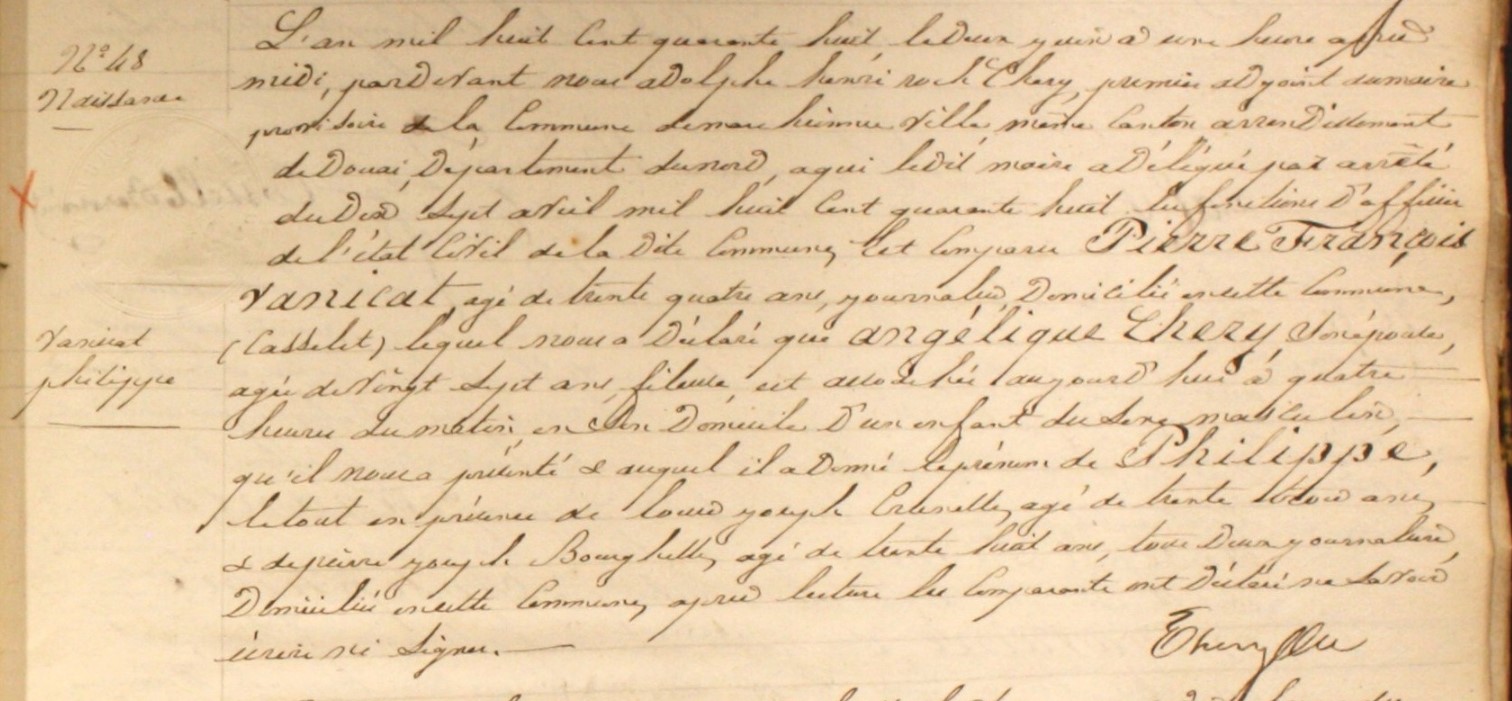 N° 48
Naissance
Vanicat
philippe
L'an mil huit cent quarante huit le deux juin à une heure après
midi, pardevant nous adolphe henri roch Thery, premier adjoint du maire
provisoire de la Commune de marchiennes Ville, même Canton arrondissement
de Douai, Département du nord, a qui ledit maire a Délégué par arrêté
du Dix Sept avril mil huit Cent quarante huit les fonctions d'officier
de l'état Civil de la dite Commune, Est Comparu Pierre François
Vanicat, agé de trente quatre ans, journalier, Domicilié en cette Commune,
(Casselet) lequel nous a Déclaré que angélique Thery, Son épouse,
agée de Vingt Sept ans, fileuse, est accouchée aujourd'hui à quatre
heures du matin, en Son Domicile D'un enfant du Sexe masculin,
qu'il nous a présenté & auquel il a Donné le prénom de Philippe,
le tout en présence de louis joseph agé de trente trois ans,
& de pierre joseph Bourghelle, agé de trente huit ans, tous Deux journaliers,
Domiciliés en cette Commune, après lecture les Comparants ont Déclaré ne Savoir
écrire ni Signer.
Thery